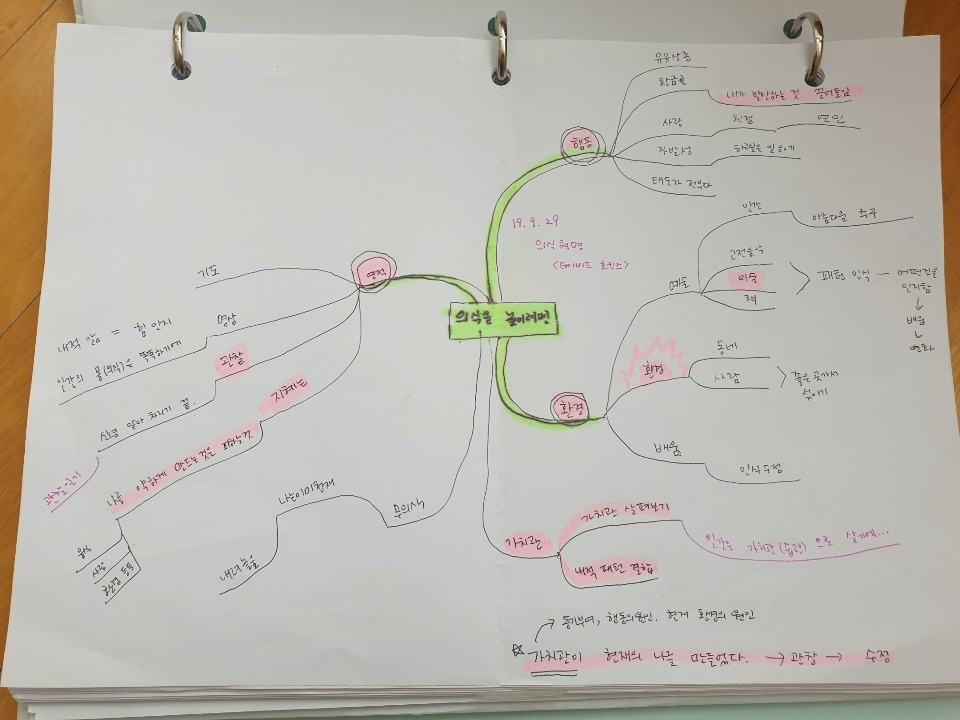 의식을 높이려면
19. 9. 29
의식혁명
<데이비드 호킨스>
행동
유유상종
황금률
내가 발산하는 것 끌어들임
사랑
친절
연민
자발성
하고싶은 일 하기
태도가 전부다
환경
예술
인간
아름다움 추구
고전음악
미술
책
패턴 인식 — 어떤것을 인지함
↓
배움
↓
변화
환경
동네
사람
좋은 곳에서
섞이기
배움
인식수정
가치관
가치관 살펴보기
인간은 가치관(습관)으로 살기에...
내적 패턴 결합
영적
기도
명상
내적 앎 = 힘 인지
관찰
신념 알아 차리기 끝.
관찰일기
지혜는
나를 약하게 만드는것은 피하는것
음식
사람
환경 등등
무의식
나는이미천재
→ 동기부여, 행동의원인, 현재 환경의 원인
☆ 가치관이 현재의 나를 만들었다. → 관찰 → 수정